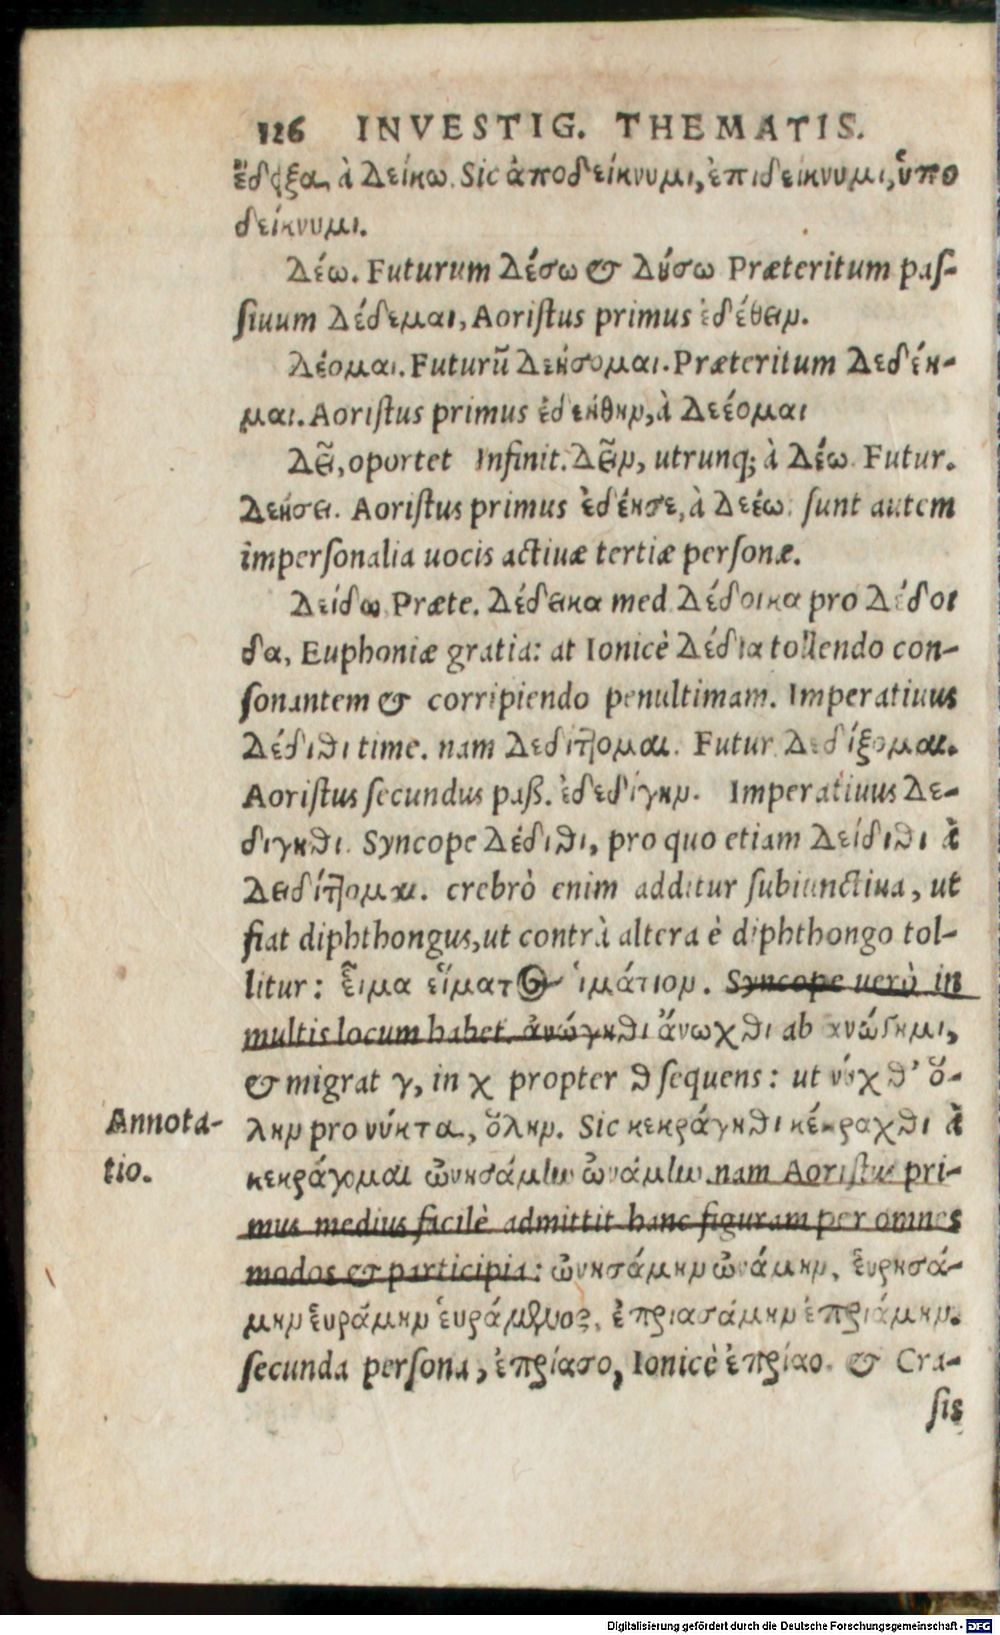 126 INVESTIG. THEMATIS.
ἔδειξα, à Δείκω. Sic ἀποδείκνυμι, ἐπιδείκνυμι, ὑπο
δείκνυμι.
Δέω. Futurum Δέσω & Δύσω Præteritum paſ-
ſiuum Δέδεμαι, Aoriſtus primus ἐδέθειν.
Δέομαι. Futurũ Δεήσομαι. Præteritum Δεδέη-
μαι. Aoriſtus primus ἐδεήθην, à Δεέομαι
Δεῖ, oportet Infinit. Δεῖν, utrunq; à Δέω Futur.
Δεήσει. Aoriſtus primus ἐδέησε, à Δεέω. ſunt autem
imperſonalia uocis actiuæ tertiæ perſonæ.
Δείδω Præte. Δέδεικα med. Δέδοικα pro Δέδοι
δα, Euphoniæ gratia: at Ionicè Δέδια tollendo con-
ſonantem & corripiendo penultimam. Imperatiuus
Δέδιθι time. nam Δεδίττομαι. Futur. Δεδίξομαι.
Aoriſtus ſecundus paß. ἐδεδίγην. Imperatiuus Δε-
διγηθι. Syncope Δέδιθι, pro quo etiam Δείδιθι à
Δειδίττομαι. crebrò enim additur ſubiunctiua, ut
fiat diphthongus, ut contrà altera è diphthongo tol-
litur: εἷμα εἵματος ἱμάτιον. Syncope uerò in
multis locum habet. ἀνώγηθι ἄνωχθι ab ἀνώγημι,
& migrat γ, in χ propter θ ſequens: ut νύχθ' ὅ-
λην pro νύκτα, ὅλην. Sic κεκράγηθι κέκραχθι à
Annota-
tio.
κεκράγομαι ὠνησάμην ὠνάμην. nam Aoriſtus pri-
mus medius facilè admittit hanc figuram per omnes
modos & participia: ὠνησάμην ὠνάμην, εὑρησά-
μην εὑράμην εὑράμενος, ἐπριασάμην ἐπριάμην.
ſecunda perſona, ἐπρίασο, Ionicè ἐπρίαο. & Cra-
ſis
Digitalisierung gefördert durch die Deutsche Forschungsgemeinschaft - DFG